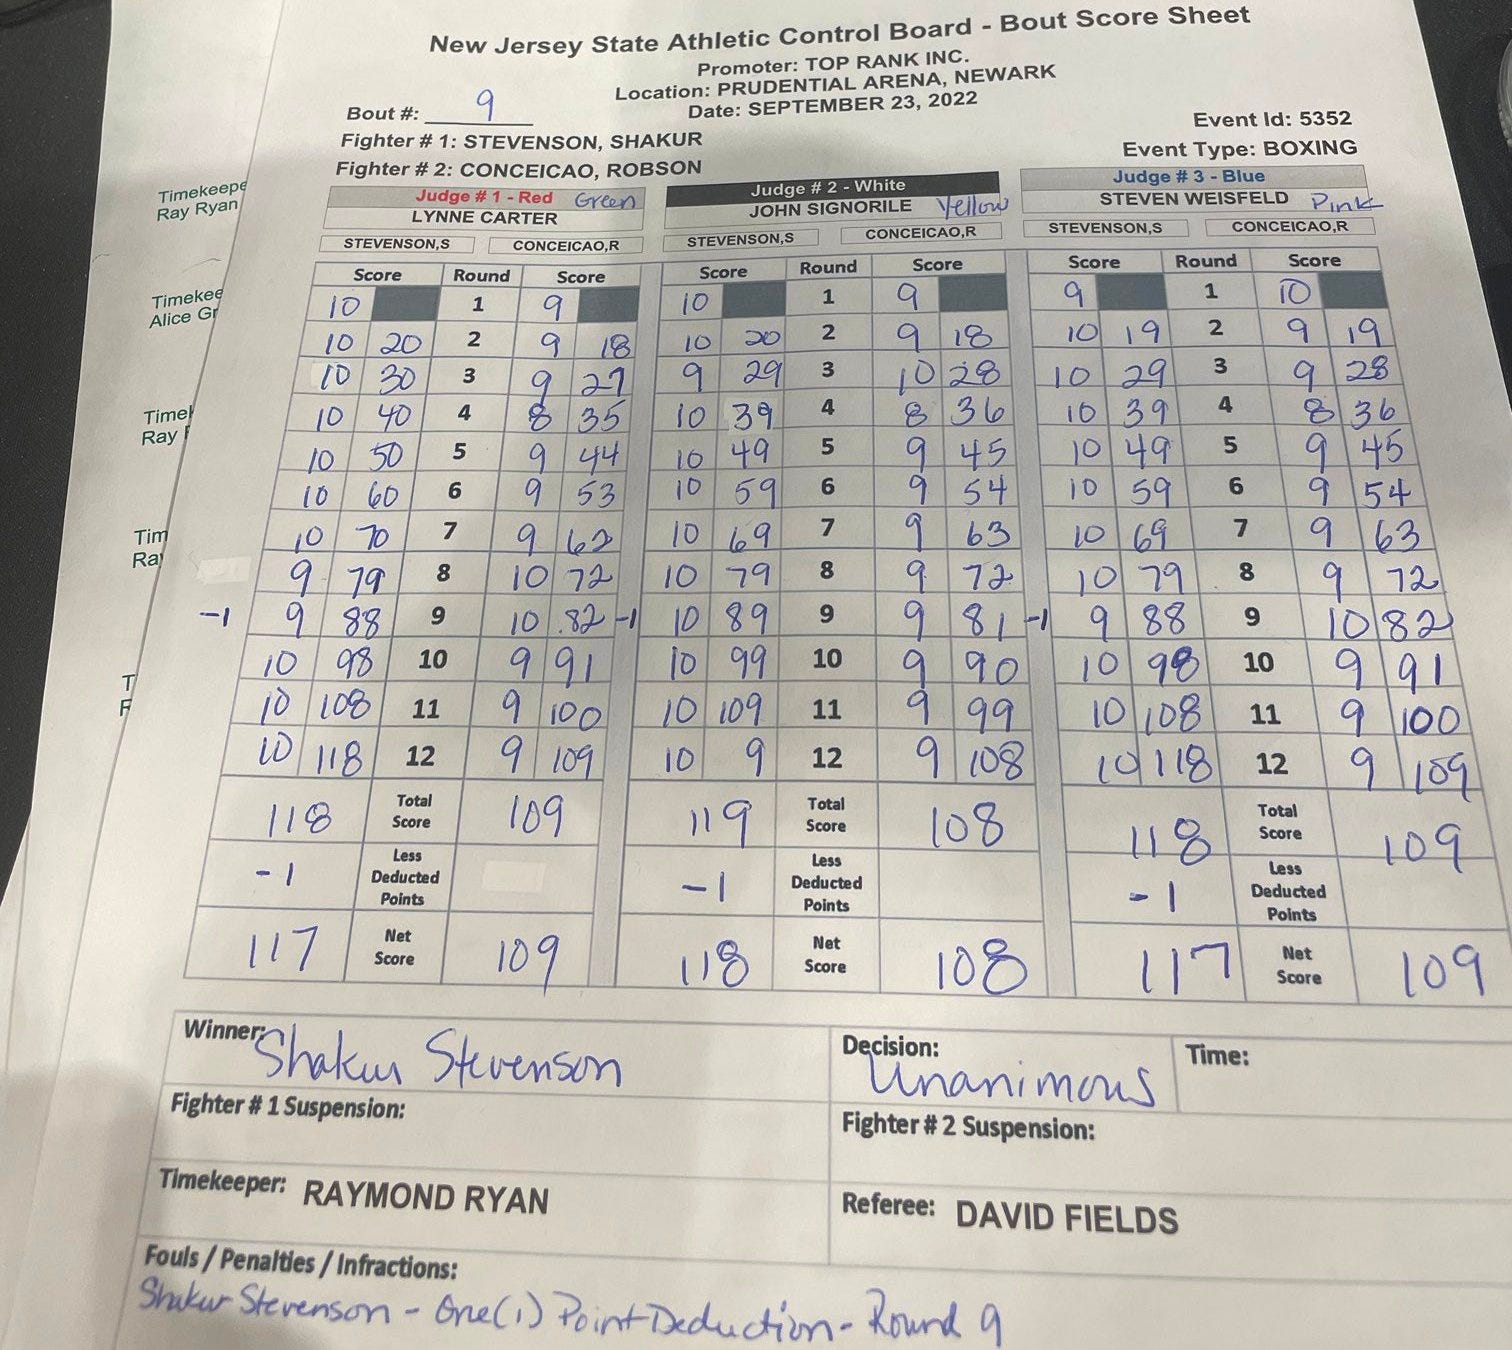 New Jersey State Athletic Control Board - Bout Score Sheet
Promoter: TOP RANK INC.
Location: PRUDENTIAL ARENA, NEWARK
Date: SEPTEMBER 23, 2022
Bout #: 9
Event Id: 5352
Fighter # 1: STEVENSON, SHAKUR
Event Type: BOXING
Fighter # 2: CONCEICAO, ROBSON
Timekeepe
Ray Ryan
Timekee
Alice Gr
Timek
Ray
Tim
Ray
T
F
Judge # 1 - Red Green Judge # 2 - White Judge # 3 - Blue
LYNNE CARTER JOHN SIGNORILE Yellow STEVEN WEISFELD Pink
STEVENSON,S CONCEICAO,R STEVENSON,S CONCEICAO,R STEVENSON,S CONCEICAO,R
Score Round Score Score Round Score Score Round Score
10 1 9 10 1 9 9 1 10
10 20 2 9 18 10 20 2 9 18 10 19 2 9 19
10 30 3 9 27 9 29 3 10 28 10 29 3 9 28
10 40 4 8 35 10 39 4 8 36 10 39 4 8 36
10 50 5 9 44 10 49 5 9 45 10 49 5 9 45
10 60 6 9 53 10 59 6 9 54 10 59 6 9 54
10 70 7 9 62 10 69 7 9 63 10 69 7 9 63
9 79 8 10 72 10 79 8 9 72 10 79 8 9 72
-1 9 88 9 10 82 -1 10 89 9 9 81 -1 9 88 9 10 82
10 98 10 9 91 10 99 10 9 90 10 98 10 9 91
10 108 11 9 100 10 109 11 9 99 10 108 11 9 100
10 118 12 9 109 10 9 12 9 108 10 118 12 9 109
118 Total Score 109 119 Total Score 108 118 Total Score 109
-1 Less Deducted Points -1 Less Deducted Points -1 Less Deducted Points
117 Net Score 109 118 Net Score 108 117 Net Score 109
Winner: Shakur Stevenson Decision: Unanimous Time:
Fighter # 1 Suspension: Fighter # 2 Suspension:
Timekeeper: RAYMOND RYAN Referee: DAVID FIELDS
Fouls / Penalties / Infractions:
Shakur Stevenson - One (1) Point Deduction - Round 9